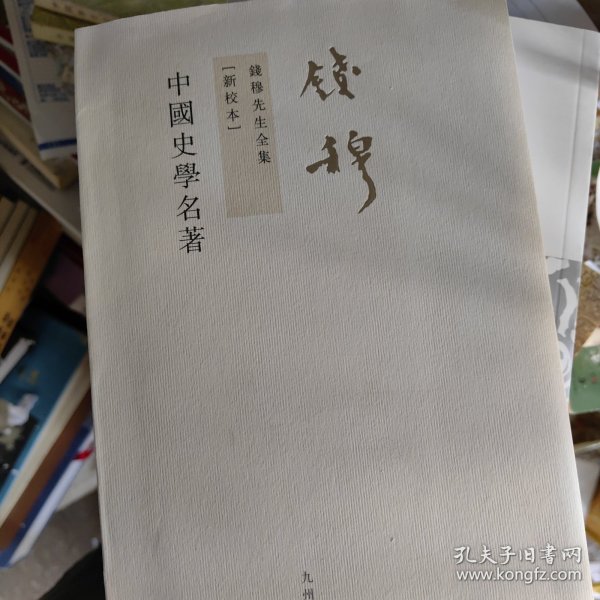 錢穆
錢穆先生全集
［新校本］
中國史學名著
九州
孔夫子旧书网
www.kongfz.com